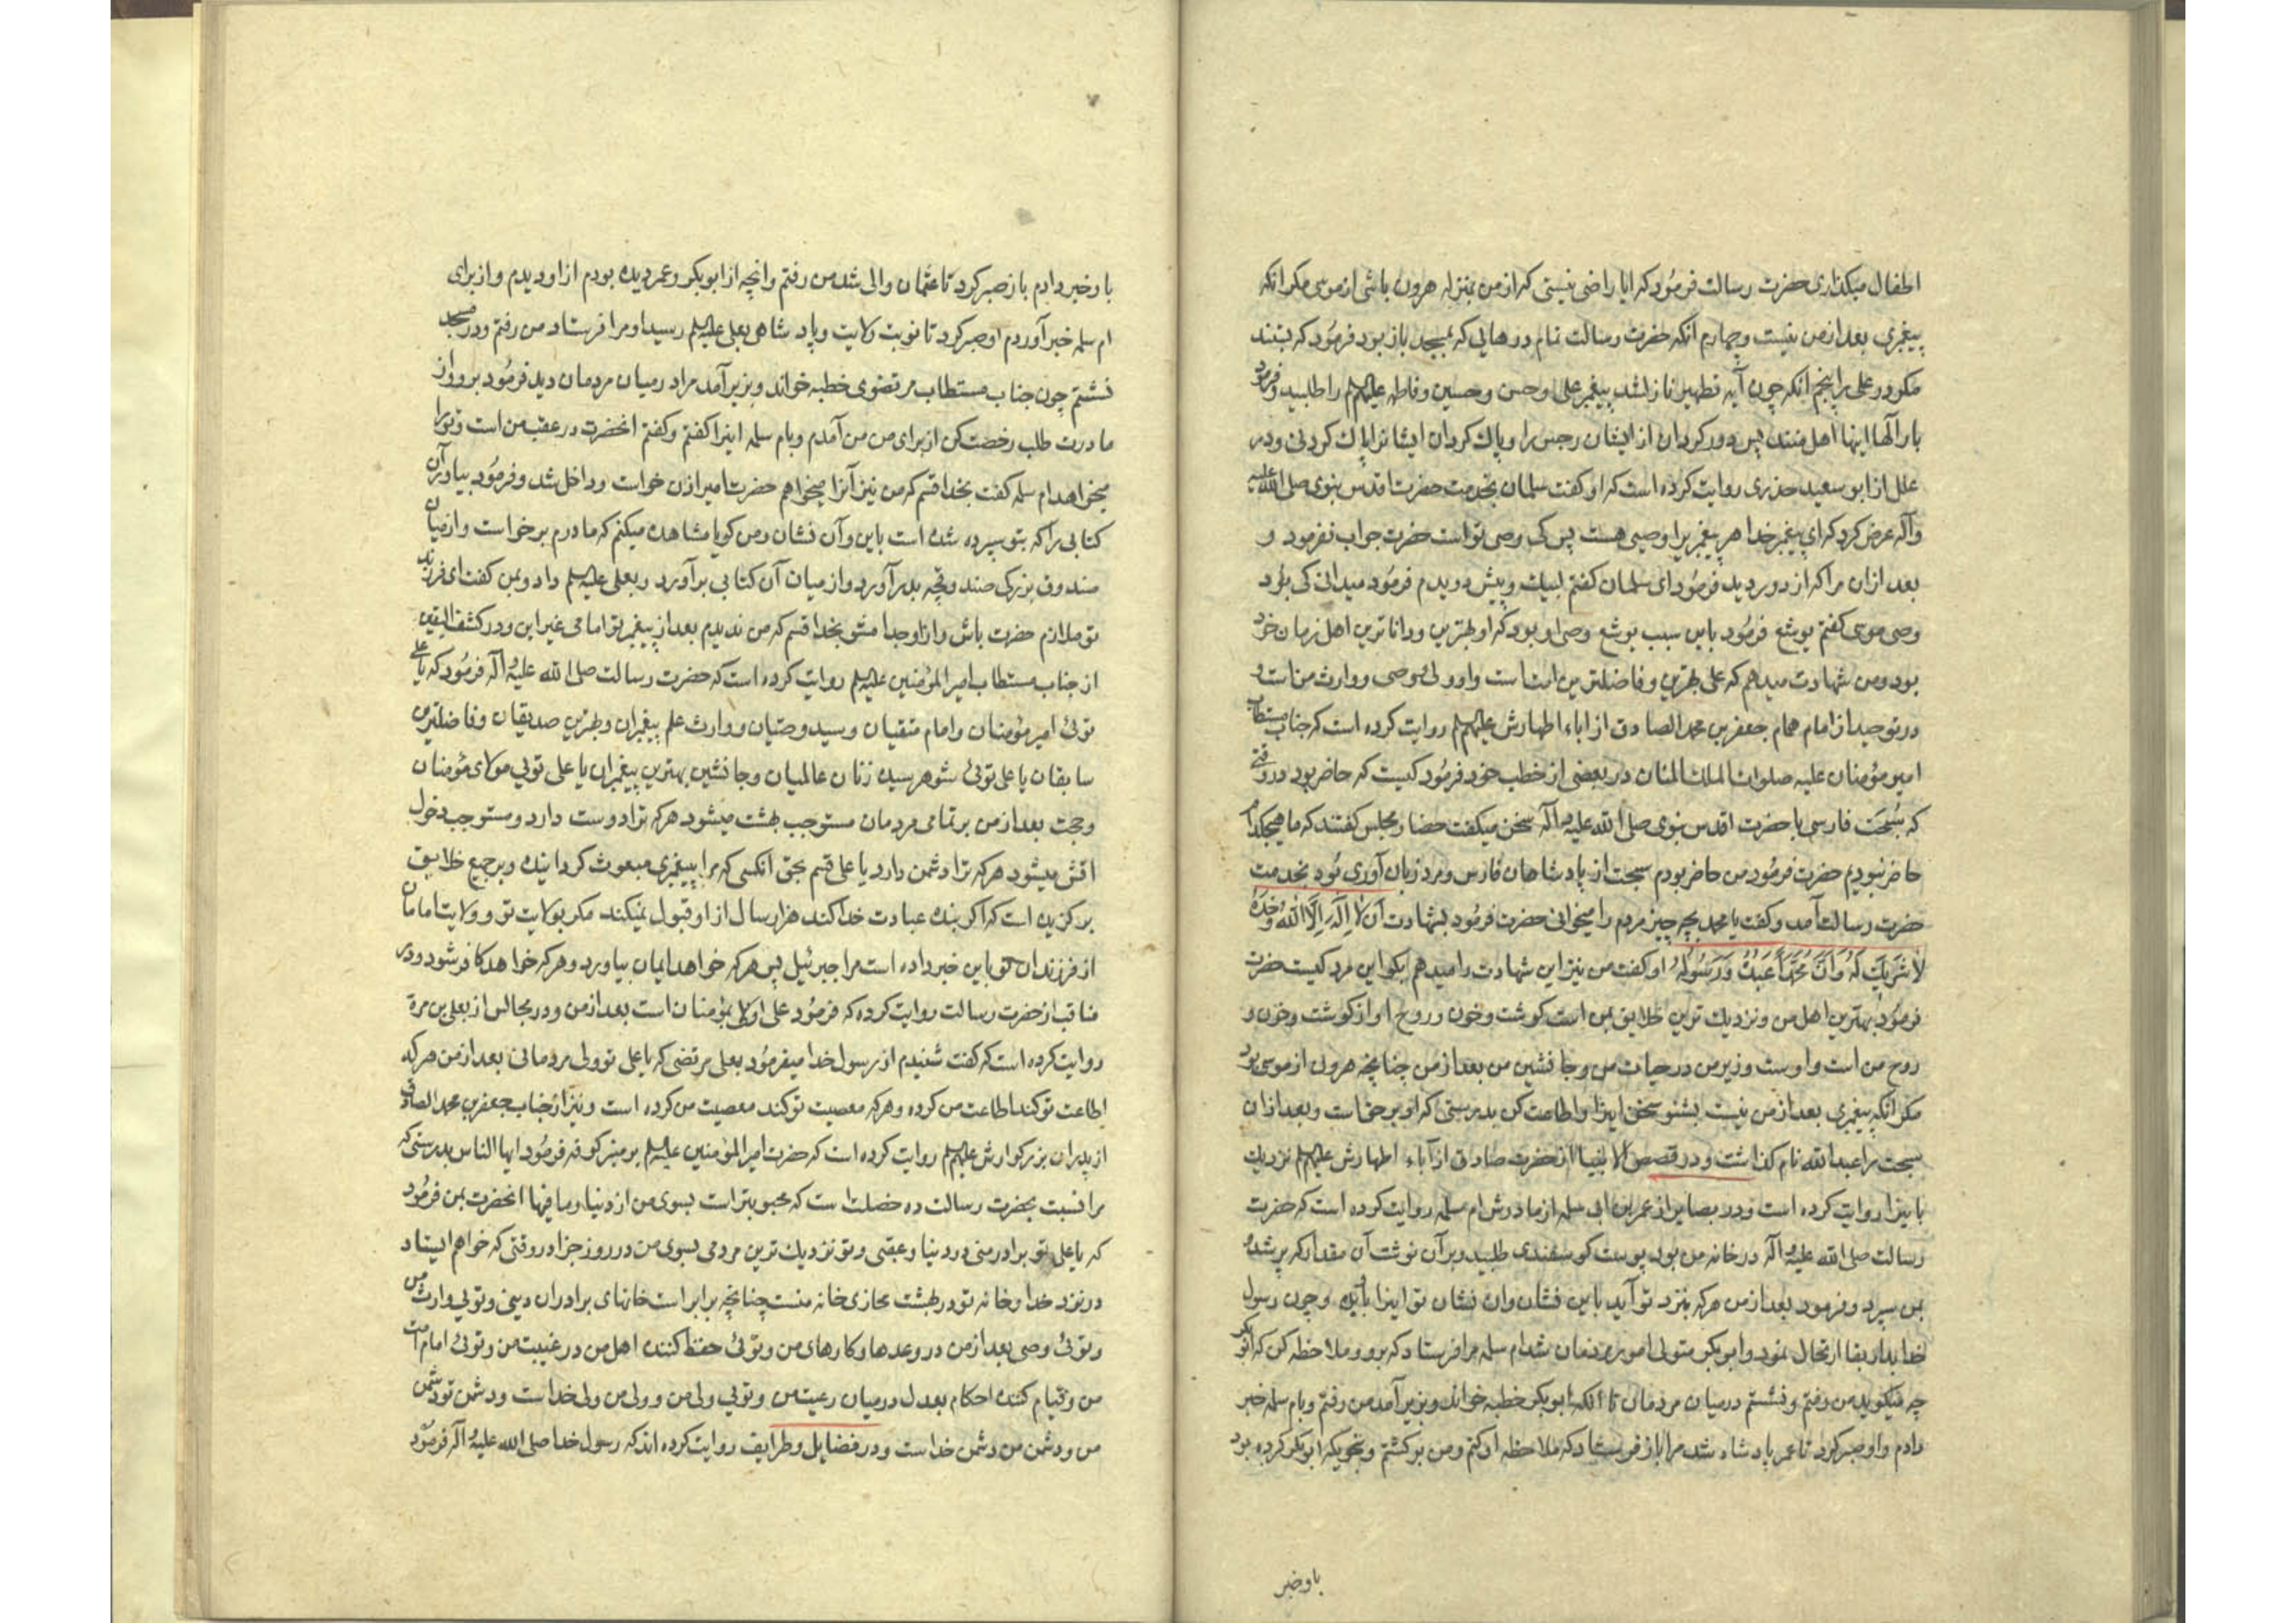 اطفال میکذاری حضرت رسالت فرمود که ایا راضی نیستی که از من بمنزله هرون باشی از موسی مکر انکه
پیغمبری بعد از من نیست و چهارم انکه حضرت رسالت تمام درهایی که بمسجد باز بود فرمود که ببندند
مکر در علی را پنجم انکه چون آیه تطهیر نازلشد پیغمبر علی و حسن و حسین و فاطمه علیهم السلم را طلبید و فرمود
بار آلها اینها اهل منند پس دور کردان از ایشان رجس را و پاک کردان ایشانرا پاک کردنی و در
علل از ابو سعید خدری روایت کرده است که او کفت سلمان بخدمت حضرت اقدس نبوی صلی الله علیه
وآله عرض کرد که ای پیغمبر خدا هر پیغمبریرا وصیی هست پس کی وصی تو است حضرت جواب نفرمود و
بعد ازان مرا که از دور دید فرمود ای سلمان کفتم لبیک و پیش دویدم فرمود میدانی کی بود
وصی موسی کفتم یوشع فرمود باین سبب یوشع وصی او بود که او بهترین و داناترین اهل زمان خود
بود و من شهادت میدهم که علی بهترین و فاضلترین امت است و او ولی و وصی و وارث من است و
در توحید از امام همام جعفر بن محمد الصادق از اباء اطهارش علیهم السلم روایت کرده است که جناب مستطاب
امیر مؤمنان علیه صلوات الملک المنان در بعضی از خطب خود فرمود کیست که حاضر بود در وقتی
که سُبحَت فارسی با حضرت اقدس نبوی صلی الله علیه و آله سخن میکفت حضار مجلس کفتند که ما هیچکدام
حاضر نبودیم حضرت فرمود من حاضر بودم سبحت از پادشاهان فارس و مرد زبان آوری بود بخدمت
حضرت رسالت آمد و کفت یا محمد بچه چیز مردم را میخوانی حضرت فرمود بشهادت اَن لا اِلَهَ اِلَّا اللهُ وَحدَهُ
لا شَرِیکَ لَهُ وَاَنَّ مُحَمَّداً عَبدُهُ وَرَسُولُهُ او کفت من نیز این شهادت را میدهم بکو این مرد کیست حضرت
فرمود بهترین اهل من و نزدیک ترین خلایق بمن است کوشت و خون و روح او از کوشت و خون و
روح من است و اوست وزیر من در حیات من و جانشین من بعد از من چنانچه هرون از موسی بود
مکر انکه پیغمبری بعد از من نیست بشنو سخن اینرا و اطاعت کن بدرستی که او بر حق است و بعد ازان
سبحت را عبد الله نام کذاشت و در قصص الانبیا از حضرت صادق از آباء اطهارش علیهم السلم نزدیک
باینرا روایت کرده است و در بصایر از عمر بن ابی سلمه از مادرش ام سلمه روایت کرده است که حضرت
رسالت صلی الله علیه و آله در خانه من بود پوست کوسفندی طلبید و بر آن نوشت آن مقدار که پر شد و
بمن سپرد و فرمود بعد از من هر که بنزد تو آید باین نشان وان نشان تو اینرا باو بده و چون رسول
خدا بدار بقا ارتحال نمود و ابو بکر متولی امور مردمان شد ام سلمه مرا فرستاد که برو و ملاحظه کن که ابو بکر
چه میکوید من رفتم و نشستم در میان مردمان تا انکه ابو بکر خطبه خواند و بزیر آمد من رفتم و بام سلمه خبر
دادم و او صبر کرد تا عمر پادشاه شد مرا باز فرستاد که ملاحظه او کنم و من برکشتم و بنحویکه ابو بکر کرده بود
باو خبر
باو خبر دادم باز صبر کرد تا عثمان والی شد من رفتم و انچه از ابو بکر و عمر دیده بودم از او دیدم و از برای
ام سلمه خبر آوردم او صبر کرد تا نوبت ولایت و پادشاهی بعلی علیه السلم رسید او مرا فرستاد من رفتم و در مسجد
نشستم چون جناب مستطاب مرتضوی خطبه خواند و بزیر آمد مرا در میان مردمان دید فرمود برو و از
مادرت طلب رخصت کن از برای من من آمدم و بام سلمه اینرا کفتم و کفتم انحضرت در عقب من است و تو را
میخواهد ام سلمه کفت بخدا قسم که من نیز آنرا میخواهم حضرت امیر اذن خواست و داخل شد و فرمود بیاور آن
کتابی را که بتو سپرده شده است باین وآن نشان و من کویا مشاهده میکنم که مادرم برخواست و از میان
صندوق بزرکی صندوقچه بدر آورد و از میان آن کتابی بر آورد و بعلی علیه السلم داد و بمن کفت ای فرزند
تو ملازم حضرت باش و از او جدا مشو بخدا قسم که من ندیدم بعد از پیغمبر تو امامی غیر این و در کشف الیقین
از جناب مستطاب امیر المؤمنین علیه السلم روایت کرده است که حضرت رسالت صلی الله علیه و آله فرمود که یا علی
توئی امیر مؤمنان و امام متقیان و سید وصیان و وارث علم پیغمبران و بهترین صدیقان و فاضلترین
سابقان یا علی توئی شوهر سیده زنان عالمیان و جانشین بهترین پیغمبران یا علی تویی مولای مؤمنان
و حجت بعد از من بر تمامی مردمان مستوجب بهشت میشود هر که ترا دوست دارد و مستوجب دخول
اتش میشود هر که ترا دشمن دارد یا علی قسم بحق انکسی که مرا بپیغمبری مبعوث کردانیده و بر جمیع خلایق
برکزیده است که اکر بنده عبادت خدا کند هزار سال از او قبول نمیکند مکر بولایت تو و ولایت امامان
از فرزندان تو باین خبر داده است مرا جبرئیل پس هر که خواهد ایمان بیاورد و هر که خواهد کافر شود و در
مناقب از حضرت رسالت روایت کرده که فرمود علی اولی بمؤمنان است بعد از من و در مجالس از یعلی بن مرة
روایت کرده است که کفت شنیدم از رسول خدا میفرمود بعلی مرتضی که یا علی تو ولی مردمانی بعد از من هر که
اطاعت تو کند اطاعت من کرده و هر که معصیت تو کند معصیت من کرده است و نیز از جناب جعفر بن محمد الصادق
از پدران بزرکوارش علیهم السلم روایت کرده است که حضرت امیر المؤمنین علیه السلم بر منبر کوفه فرمود ایها الناس بدرستی که
مرا نسبت بحضرت رسالت ده خصلت است که محبوبتر است بسوی من از دنیا و ما فیها انحضرت بمن فرمود
که یا علی تو برادر منی در دنیا و عقبی و تو نزدیک ترین مردمی بسوی من در روز جزا در وقتی که خواهم ایستاد
در نزد خدا و خانه تو در بهشت محاذی خانه منست چنانچه برابر است خانهای برادران دینی و تویی وارث من
و توئی وصی بعد از من در وعدها و کارهای من و توئی حفظ کننده اهل من در غیبت من و توئی امام امت
من و قیام کننده احکام بعدل در میان رعیت من و تویی ولی من و ولی من ولی خدا است و دشمن تو دشمن
من و دشمن من دشمن خدا است و در فضایل و طرایف روایت کرده اند که رسول خدا صلی الله علیه و آله فرمود